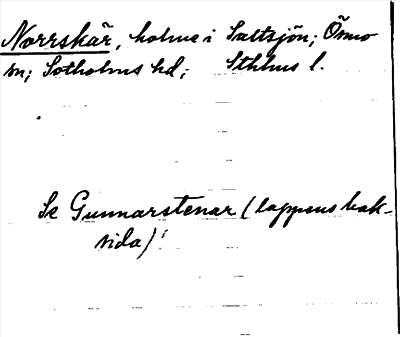 Norrskär, holme i Saltsjön; Ösmo
sn; Sotholms hd; Sthlms l.
Se Gunnarstenar (lappens bak-
sida)!